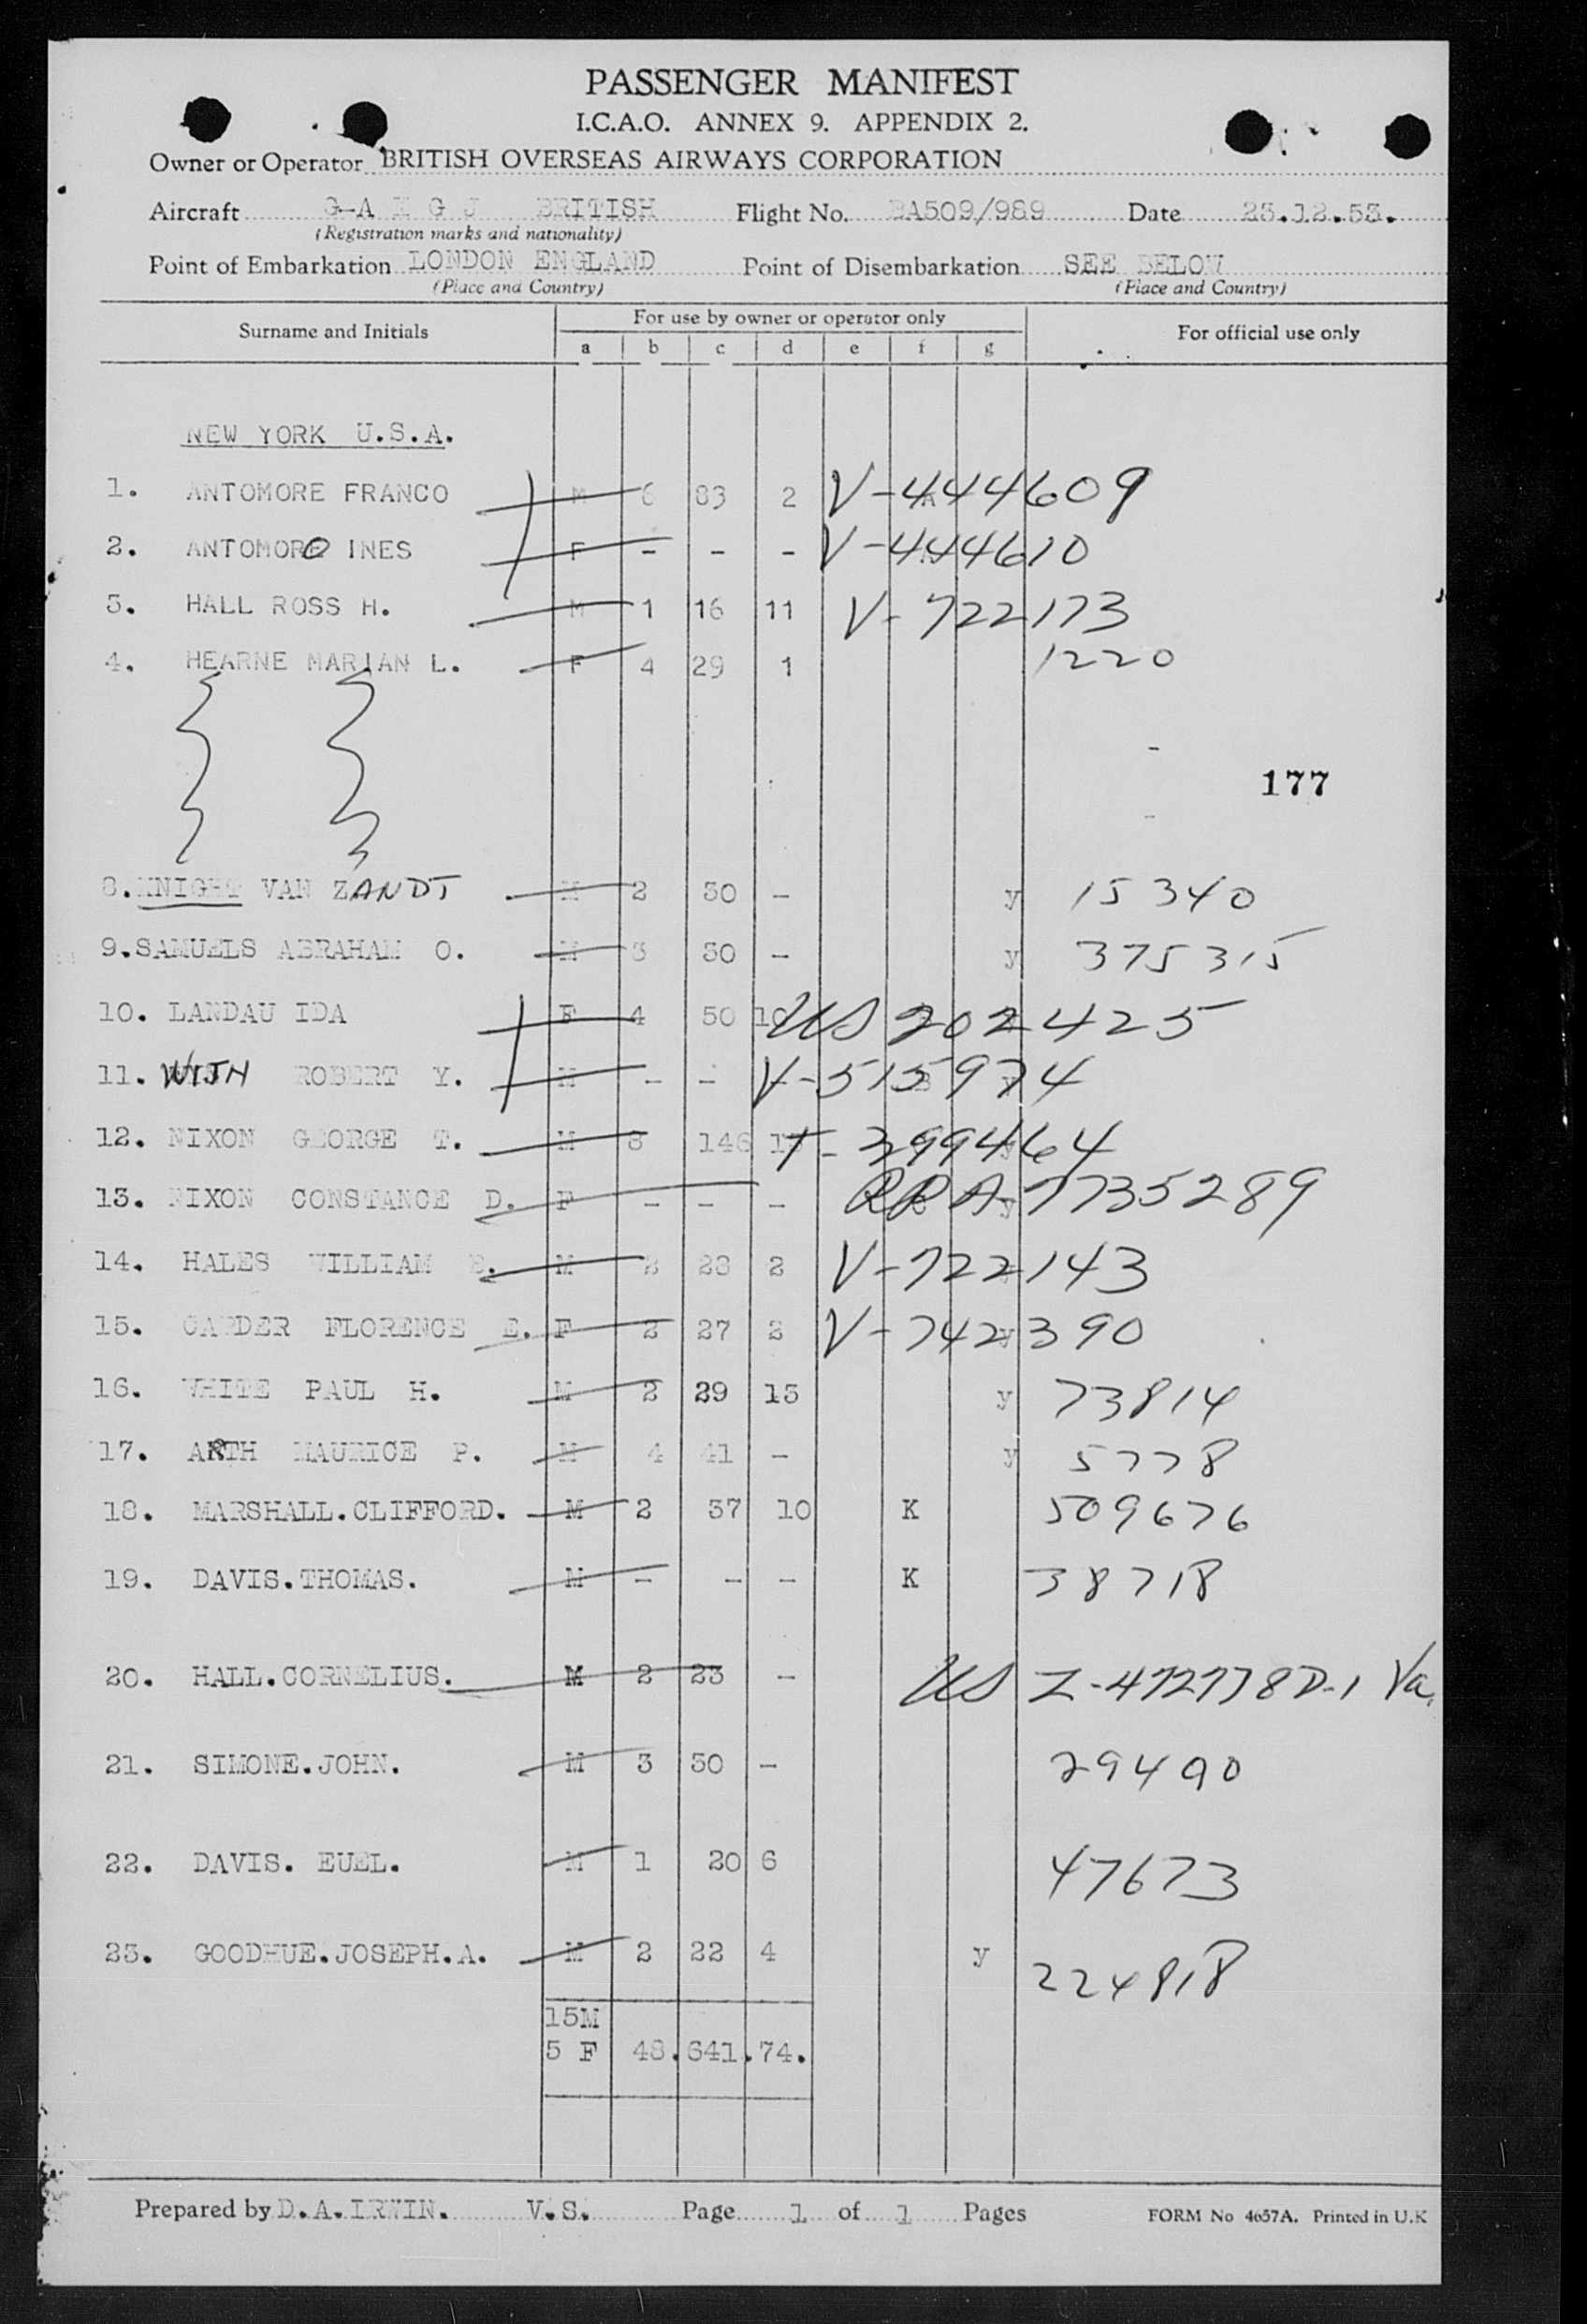 PASSENGER MANIFEST
I.C.A.O. ANNEX 9. APPENDIX 2.
Owner or Operator BRITISH OVERSEAS AIRWAYS CORPORATION
Aircraft G-A K G J BRITISH Flight No. BA509/989 Date 23.12.53.
(Registration marks and nationality)
Point of Embarkation LONDON ENGLAND Point of Disembarkation SEE BELOW
(Place and Country) (Place and Country)
Surname and Initials For use by owner or operator only For official use only
a b c d e f g
NEW YORK U.S.A.
1. ANTOMORE FRANCO M 6 83 2 V-444609
2. ANTOMORO INES F - - - V-444610
3. HALL ROSS H. M 1 16 11 V-722173
4. HEARNE MARIAN L. F 4 29 1 1220
177
8. KNIGHT VAN ZANDT M 2 30 - y 15340
9. SAMUELS ABRAHAM O. M 3 30 - y 375315
10. LANDAU IDA F 4 50 10 US 202425
11. WITH ROBERT Y. M - - V-515974
12. NIXON GEORGE T. M 8 146 T-399464
13. NIXON CONSTANCE D. F - - - y RPA-7735289
14. HALES WILLIAM E. M 2 23 2 V-722143
15. CARDER FLORENCE E. F 2 27 2 y V-742390
16. WHITE PAUL H. M 2 29 15 y 73814
17. ARTH MAURICE P. M 4 41 - y 5778
18. MARSHALL.CLIFFORD. M 2 37 10 K 509676
19. DAVIS.THOMAS. M - - - K 38718
20. HALL.CORNELIUS. M 2 23 - US Z-472778D-1 Va.
21. SIMONE.JOHN. M 3 30 - 29490
22. DAVIS. EUEL. M 1 20 6 47673
23. GOODHUE.JOSEPH.A. M 2 22 4 y 224818
15M
5 F 48.641.74.
Prepared by D.A.IRWIN. V.S. Page 1 of 1 Pages FORM No 4657A. Printed in U.K